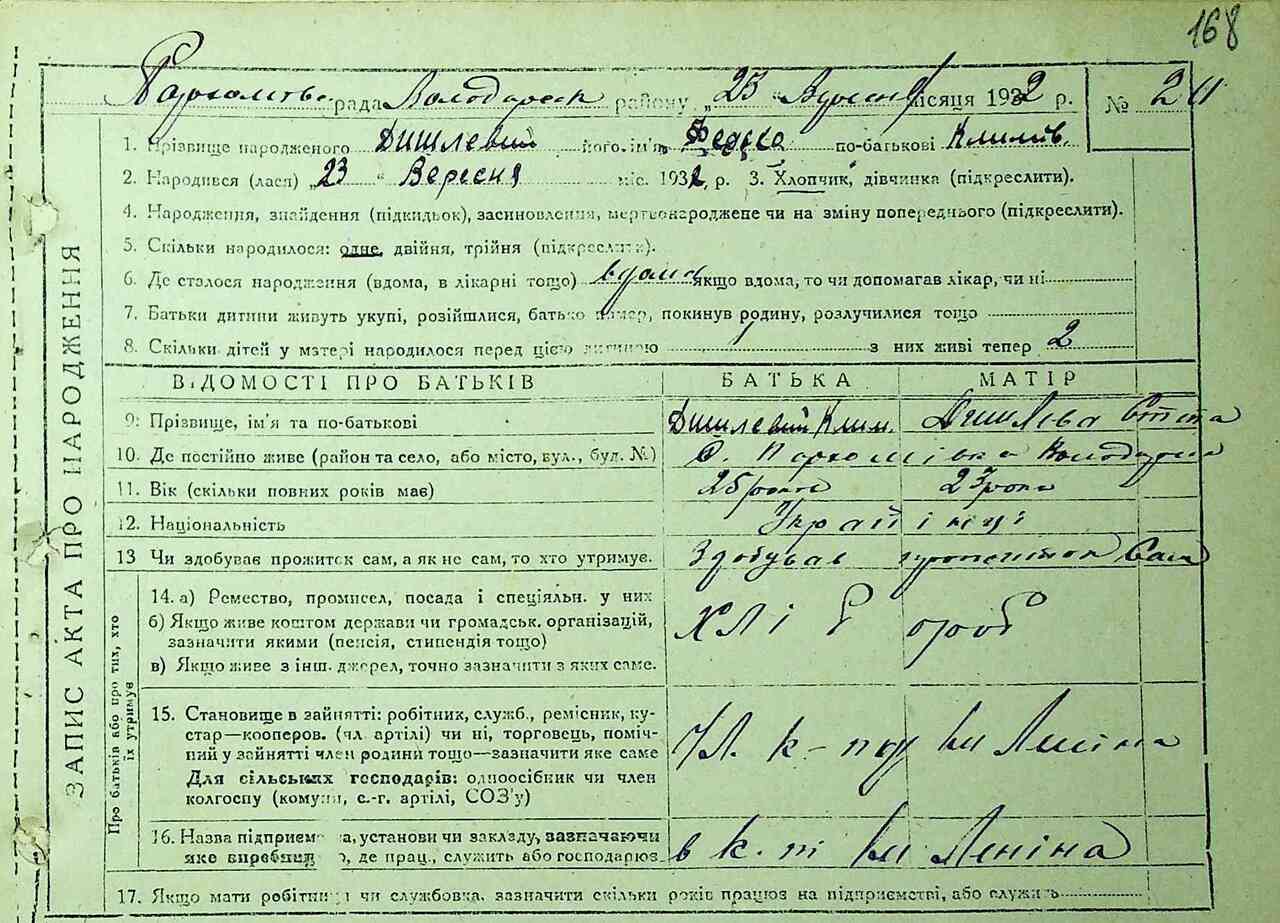 168
рада Володарськ району „23 “ Вересня місяця 1932 р. № 2
ЗАПИС АКТА ПРО НАРОДЖЕННЯ
1. Прізвище народженого Дишлевий його ім'я Федько по-батькові Климів.
2. Народився (лася) „23 “ Вересня міс. 1932 р. 3. Хлопчик, дівчинка (підкреслити).
4. Народження, знайдення (підкидьок), засиновлення, мертвонароджене чи на зміну попереднього (підкреслити).
5. Скільки народилося: одне, двійня, трійня (підкреслити).
6. Де сталося народження (вдома, в лікарні тощо) вдома якщо вдома, то чи допомагав лікар, чи ні
7. Батьки дитини живуть укупі, розійшлися, батько помер, покинув родину, розлучилися тощо
8. Скільки дітей у матері народилося перед цією дитиною 1 з них живі тепер 2
ВІДОМОСТІ ПРО БАТЬКІВ БАТЬКА МАТІР
9. Прізвище, ім'я та по-батькові Дишлевий Клим.
10. Де постійно живе (район та село, або місто, вул., буд. №) с. Пархомівка
11. Вік (скільки повних років має) 25 роки 23 роки
12. Національність Українці
13 Чи здобував прожиток сам, а як не сам, то хто утримує. Здобував сам
Про батьків або про тих, хто їх утримує
14. а) Ремество, промисел, посада і спеціяльн. у них
б) Якщо живе коштом держави чи громадськ. організацій, зазначити якими (пенсія, стипендія тощо) хлібороб
в) Якщо живе з інш. джерел, точно зазначити з яких саме.
15. Становище в зайнятті: робітник, служб., ремісник, ку-
стар—кооперов. (чл. артілі) чи ні, торговець, поміч-
ний у зайнятті член родини тощо—зазначити яке саме чл. к- ім Леніна
Для сільських господарів: одноосібник чи член
колгоспу (комуни, с.-г. артілі, СОЗ'у)
16. Назва підприємства, установи чи закладу, зазначаючи
яке виробництво, де прац., служить або господарює в к. ім Леніна
17. Якщо мати робітниця чи службовка, зазначити скільки років працює на підприємстві, або служить